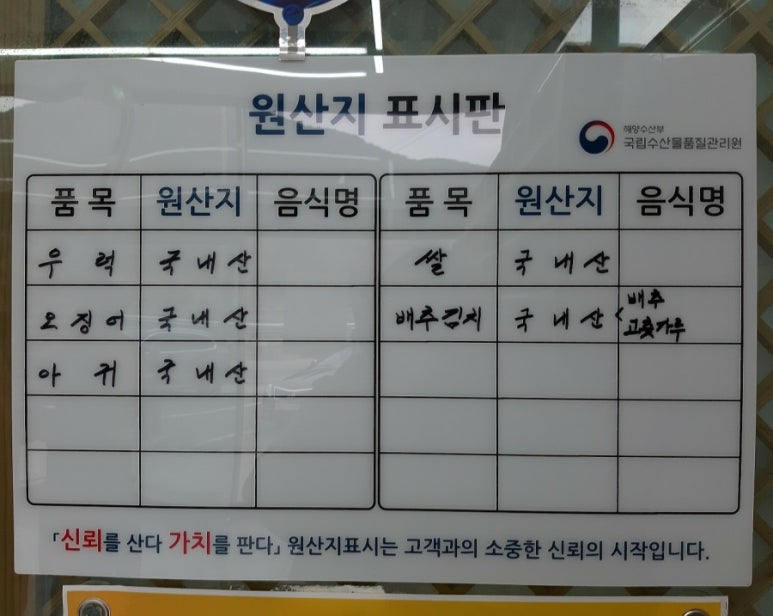 원산지 표시판
해양수산부
국립수산물품질관리원
품목 원산지 음식명 품목 원산지 음식명
우럭 국내산 쌀 국내산
오징어 국내산 배추김치 국내산 < 배추
고춧가루
아귀 국내산
「신뢰를 산다 가치를 판다」 원산지표시는 고객과의 소중한 신뢰의 시작입니다.